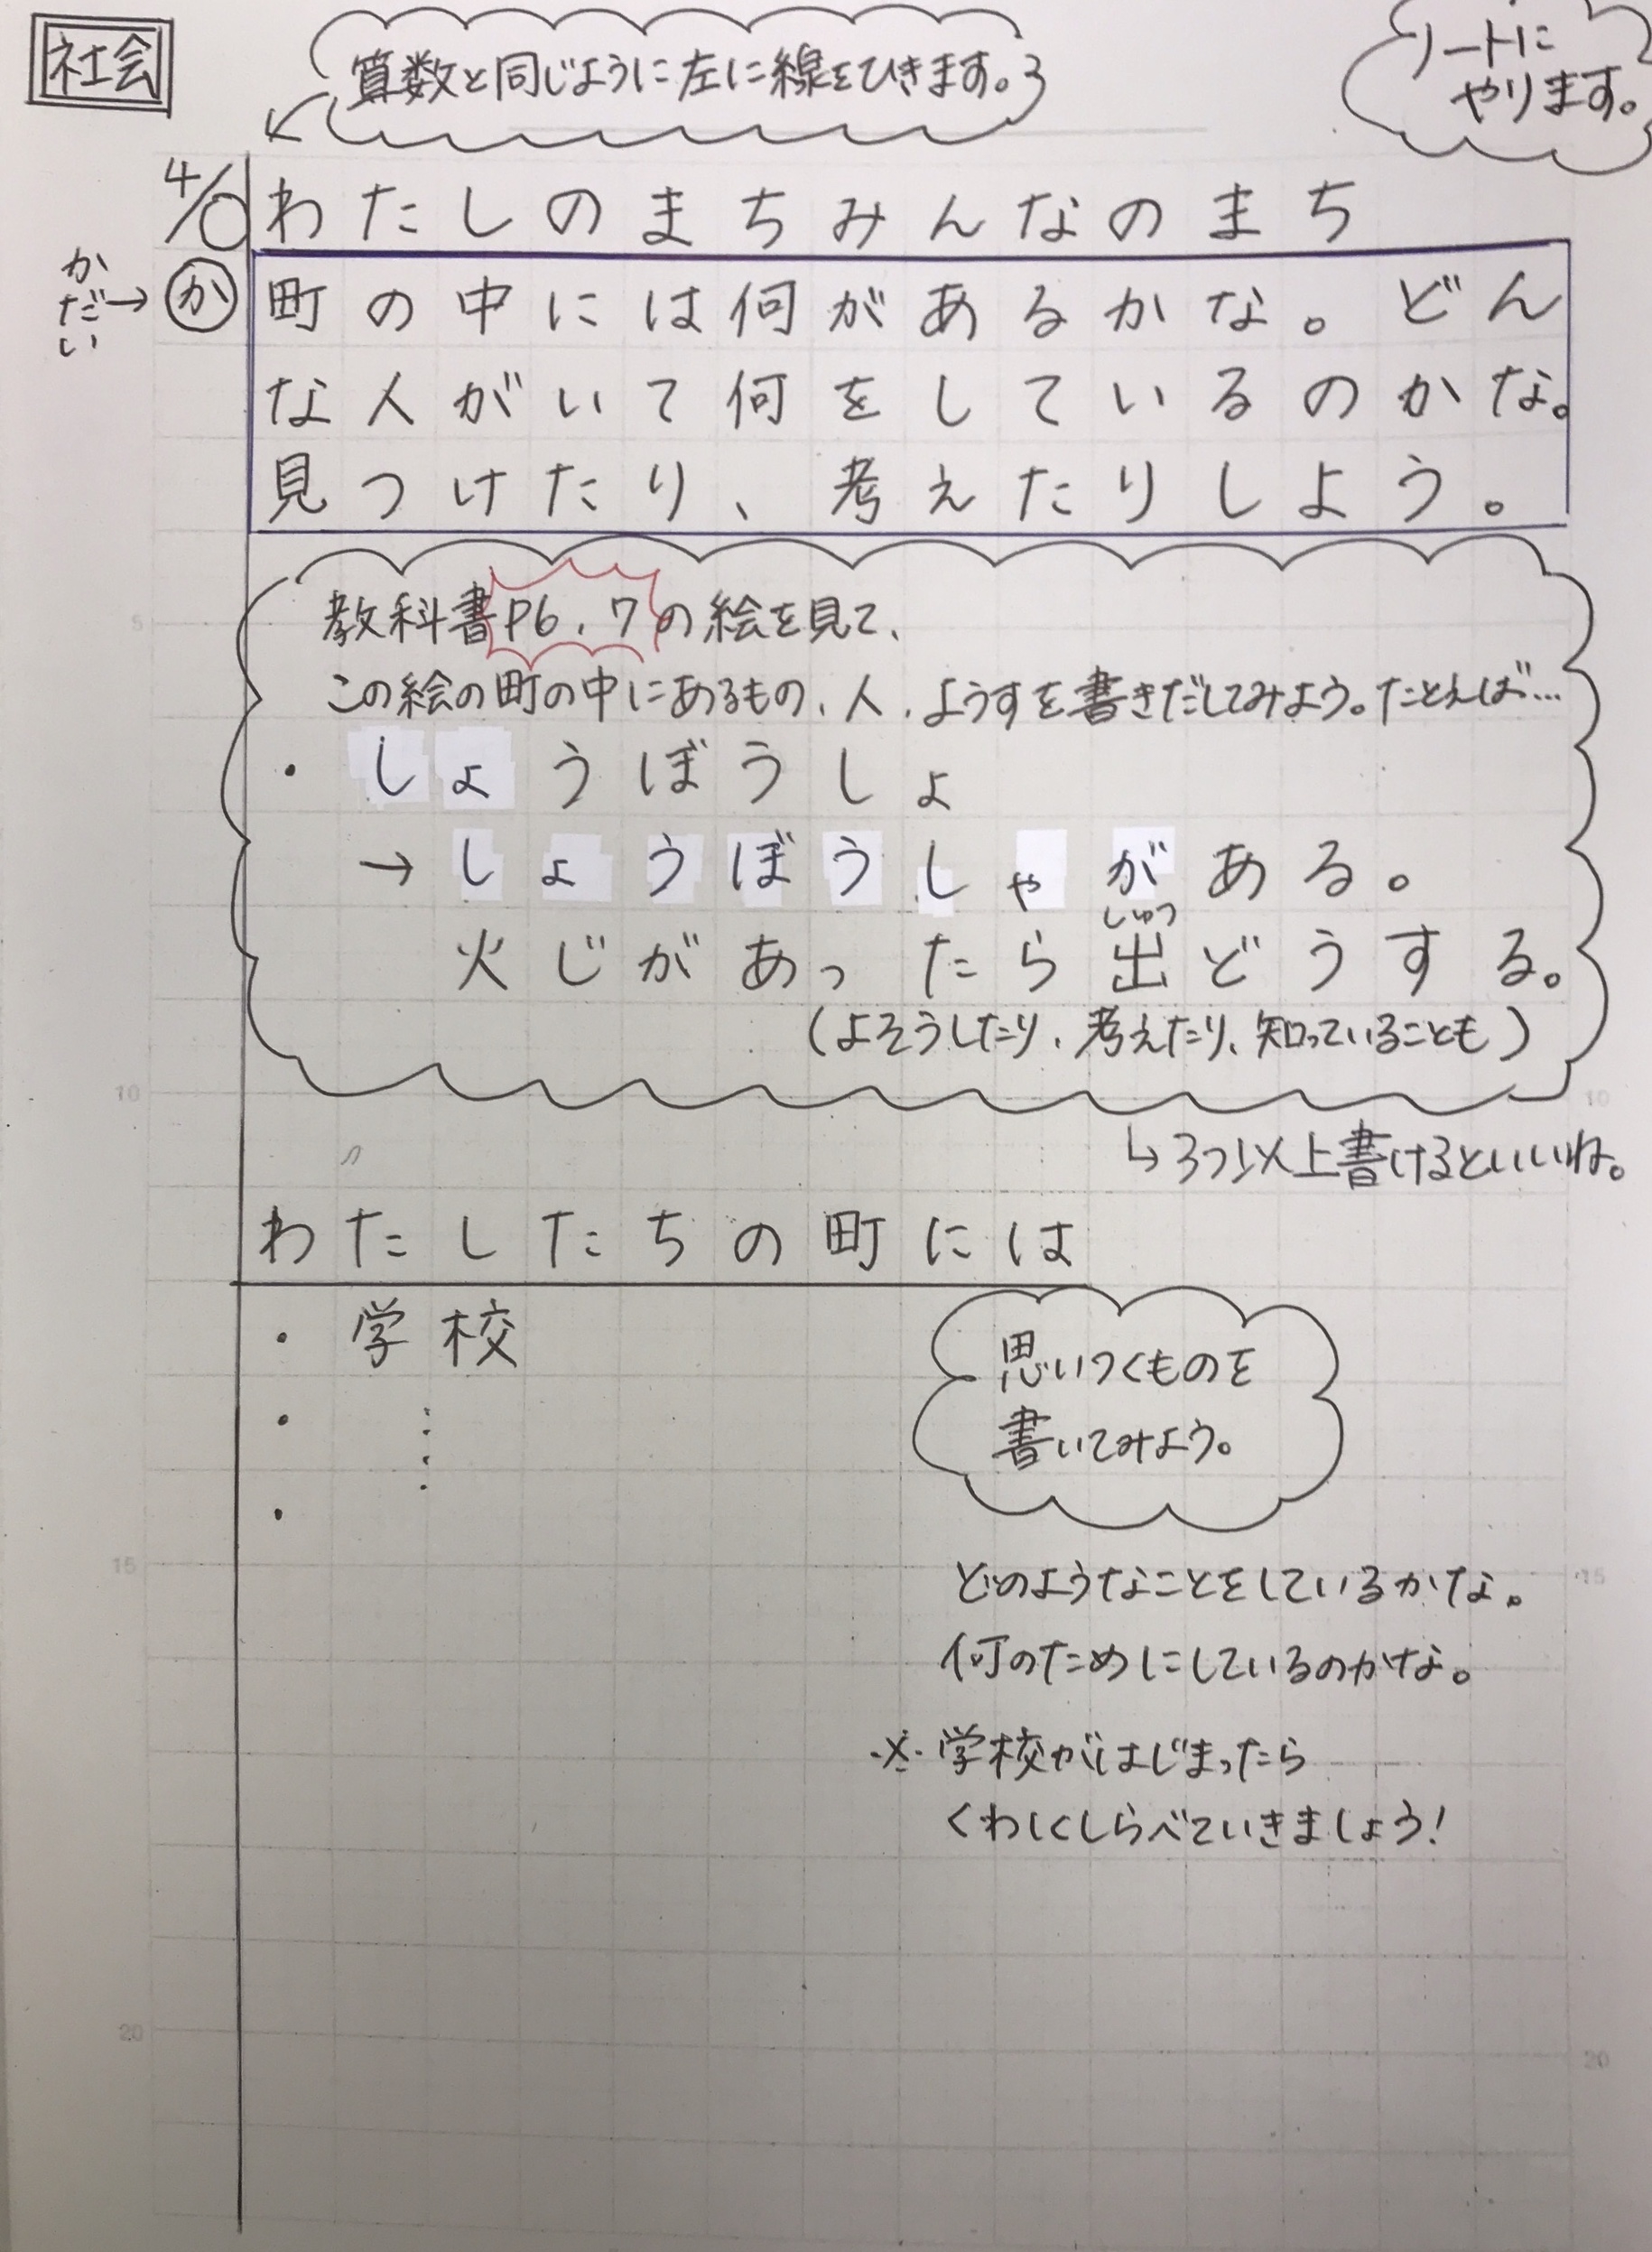 社会
算数と同じように左に線をひきます。
ノートに
やります。
4/○
わたしのまちみんなのまち
かだい→
か
町の中には何があるかな。どん
な人がいて何をしているのかな。
見つけたり、考えたりしよう。
教科書P6、7の絵を見て、
この絵の町の中にあるもの、人、ようすを書きだしてみよう。たとえば…
・しょうぼうしょ
→しょうぼうしゃがある。
しゅつ
火じがあったら出どうする。
(よそうしたり、考えたり、知っていることも)
↳3つ以上書けるといいね。
わたしたちの町には
・学校
・
・
思いつくものを
書いてみよう。
どのようなことをしているかな。
何のためにしているのかな。
※学校がはじまったら
くわしくしらべていきましょう!
5
10
10
15
15
20
20